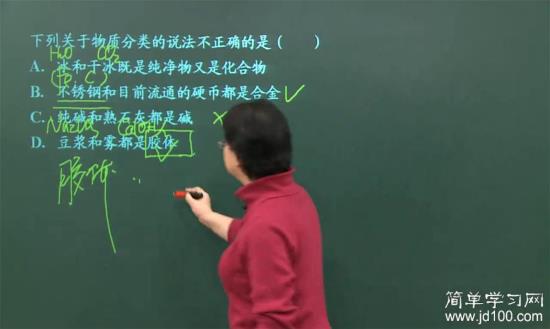 下列关于物质分类的说法不正确的是（ ）
H₂O CO₂
A. 冰和干冰既是纯净物又是化合物
B. 不锈钢和目前流通的硬币都是合金 ✓
C. 纯碱和熟石灰都是碱 ×
D. 豆浆和雾都是胶体
简单学习网
www.jd100.com